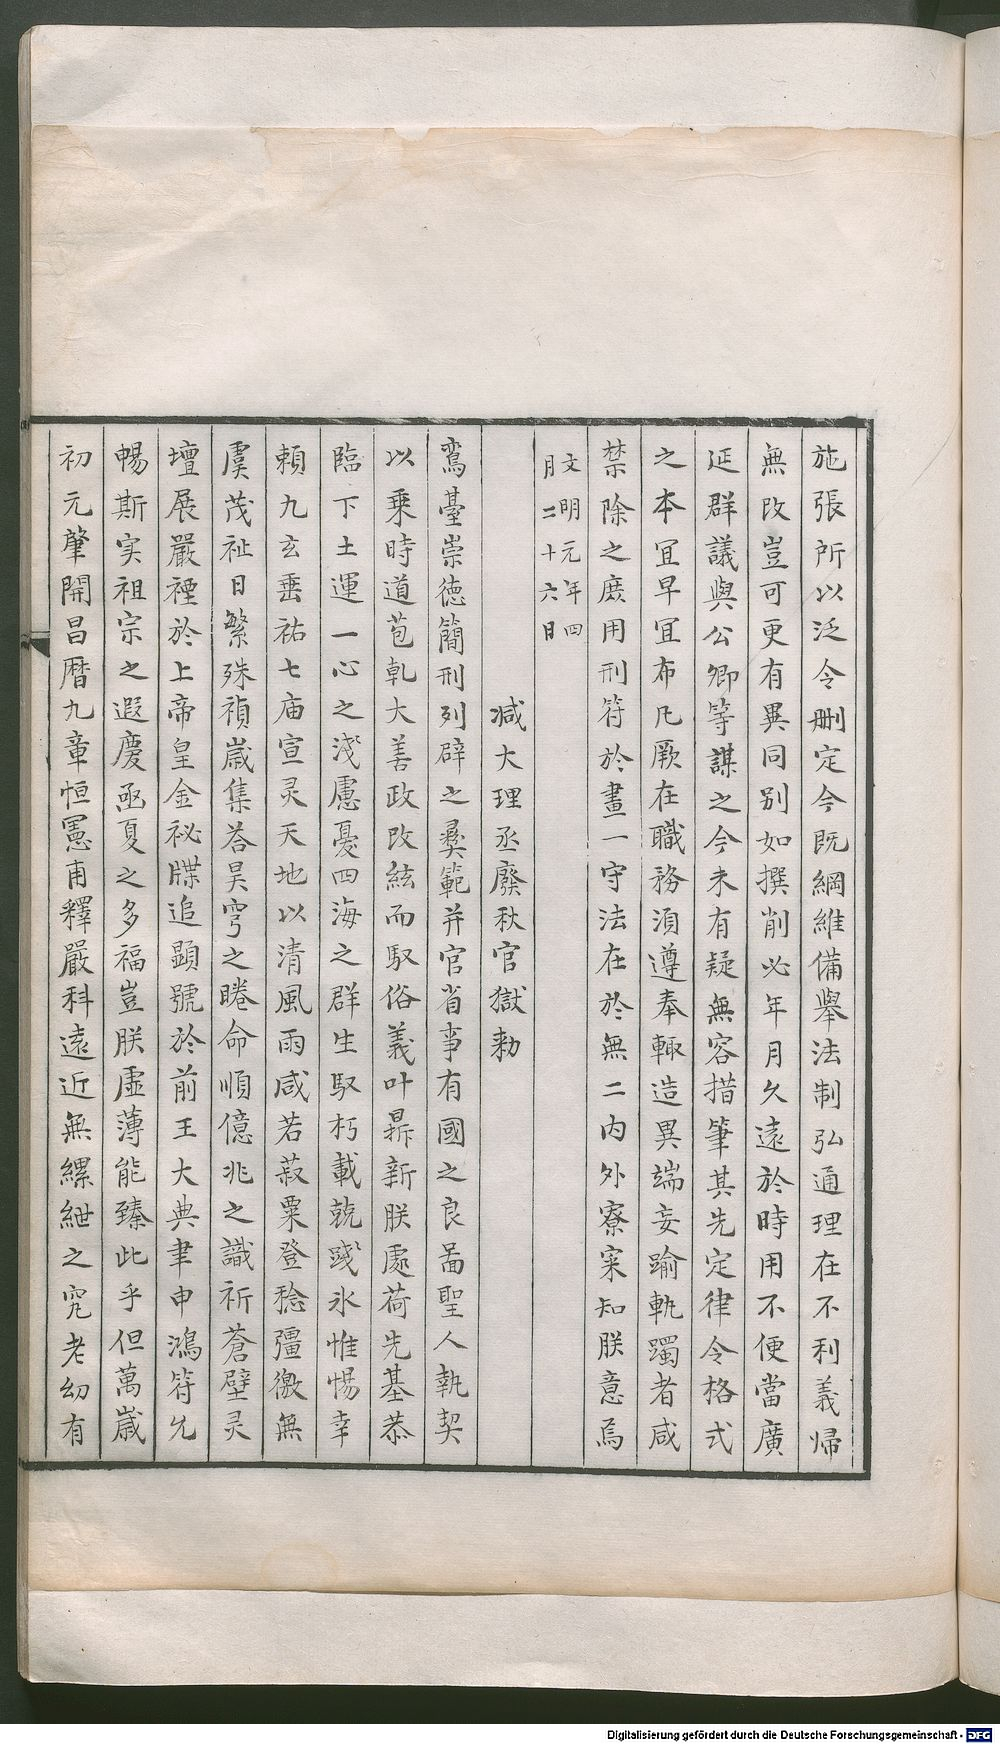 施張所以泛令刪定今既綱維備舉法制弘通理在不利義歸
無改豈可更有異同別如撰削必年月久遠於時用不便當廣
延群議與公卿等謀之今未有疑無容措筆其先定律令格式
之本宜早宜布凡厥在職務湏遵奉輙造異端妄踰軌躅者咸
禁除之庻用刑符於畫一守法在於無二内外寮寀知朕意焉
文明元年四
月二十六日
減大理丞廢秋官獄勑
鸞臺崇德簡刑列辟之彝範并官省事有國之良啚聖人執契
以乗時道苞軋大善政改絃而馭俗義叶鼎新朕處荷先基恭
臨下土運一心之淺慮憂四海之群生馭朽載兢踐氷惟惕幸
頼九玄垂祐七庙宣灵天地以清風雨咸若菽粟登稔彊徼無
虞茂祉日繁殊禎歳集荅昊穹之睠命順億兆之識祈蒼璧灵
壇展嚴禋於上帝皇金祕牒追顯號於前王大典聿申鴻符允
暢斯实祖宗之遐慶亟夏之多福豈朕虛薄能臻此乎但萬歳
初元肇開昌暦九章恒憲甫釋嚴科遠近無縲紲之寃老幼有
Digitalisierung gefördert durch die Deutsche Forschungsgemeinschaft - DFG